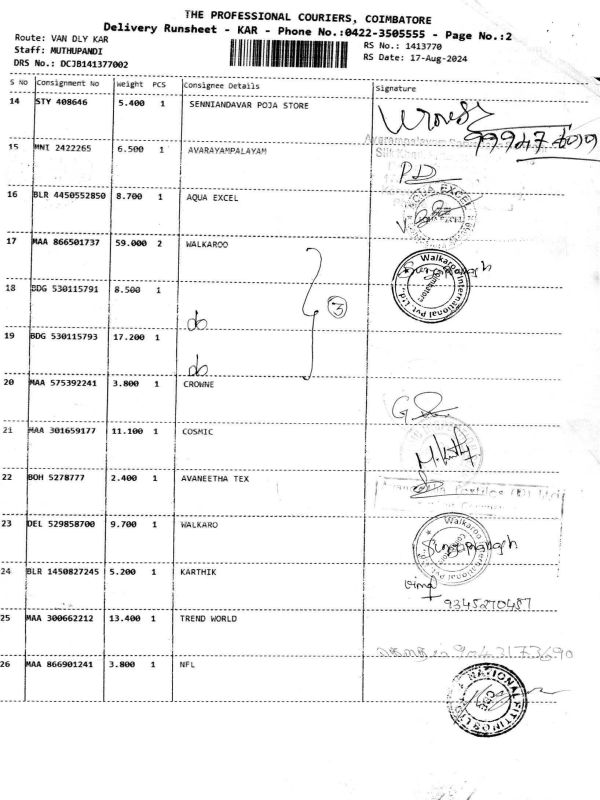 THE PROFESSIONAL COURIERS, COIMBATORE
Delivery Runsheet - KAR - Phone No.:0422-3505555 - Page No.:2
Route: VAN DLY KAR
Staff: MUTHUPANDI
DRS No.: DCJB141377002
RS No.: 1413770
RS Date: 17-Aug-2024
S No Consignment No Weight PCS Consignee Details Signature
14 STY 408646 5.400 1 SENNIANDAVAR POJA STORE
15 MNI 2422265 6.500 1 AVARAYAMPALAYAM
P.D
16 BLR 4450552850 8.700 1 AQUA EXCEL
AQUA EXCEL
17 MAA 866501737 59.000 2 WALKAROO
Walkaroo International Pvt. Ltd.
Coimbatore
18 BDG 530115791 8.500 1
do
3
19 BDG 530115793 17.200 1
do
20 MAA 575392241 3.800 1 CROWNE
21 MAA 301659177 11.100 1 COSMIC
22 BOH 5278777 2.400 1 AVANEETHA TEX
23 DEL 529858700 9.700 1 WALKARO
Walkaroo International Pvt. Ltd.
24 BLR 1450827245 5.200 1 KARTHIK
9345270487
25 MAA 300662212 13.400 1 TREND WORLD
26 MAA 866901241 3.800 1 NFL
NATIONAL FITTINGS LTD